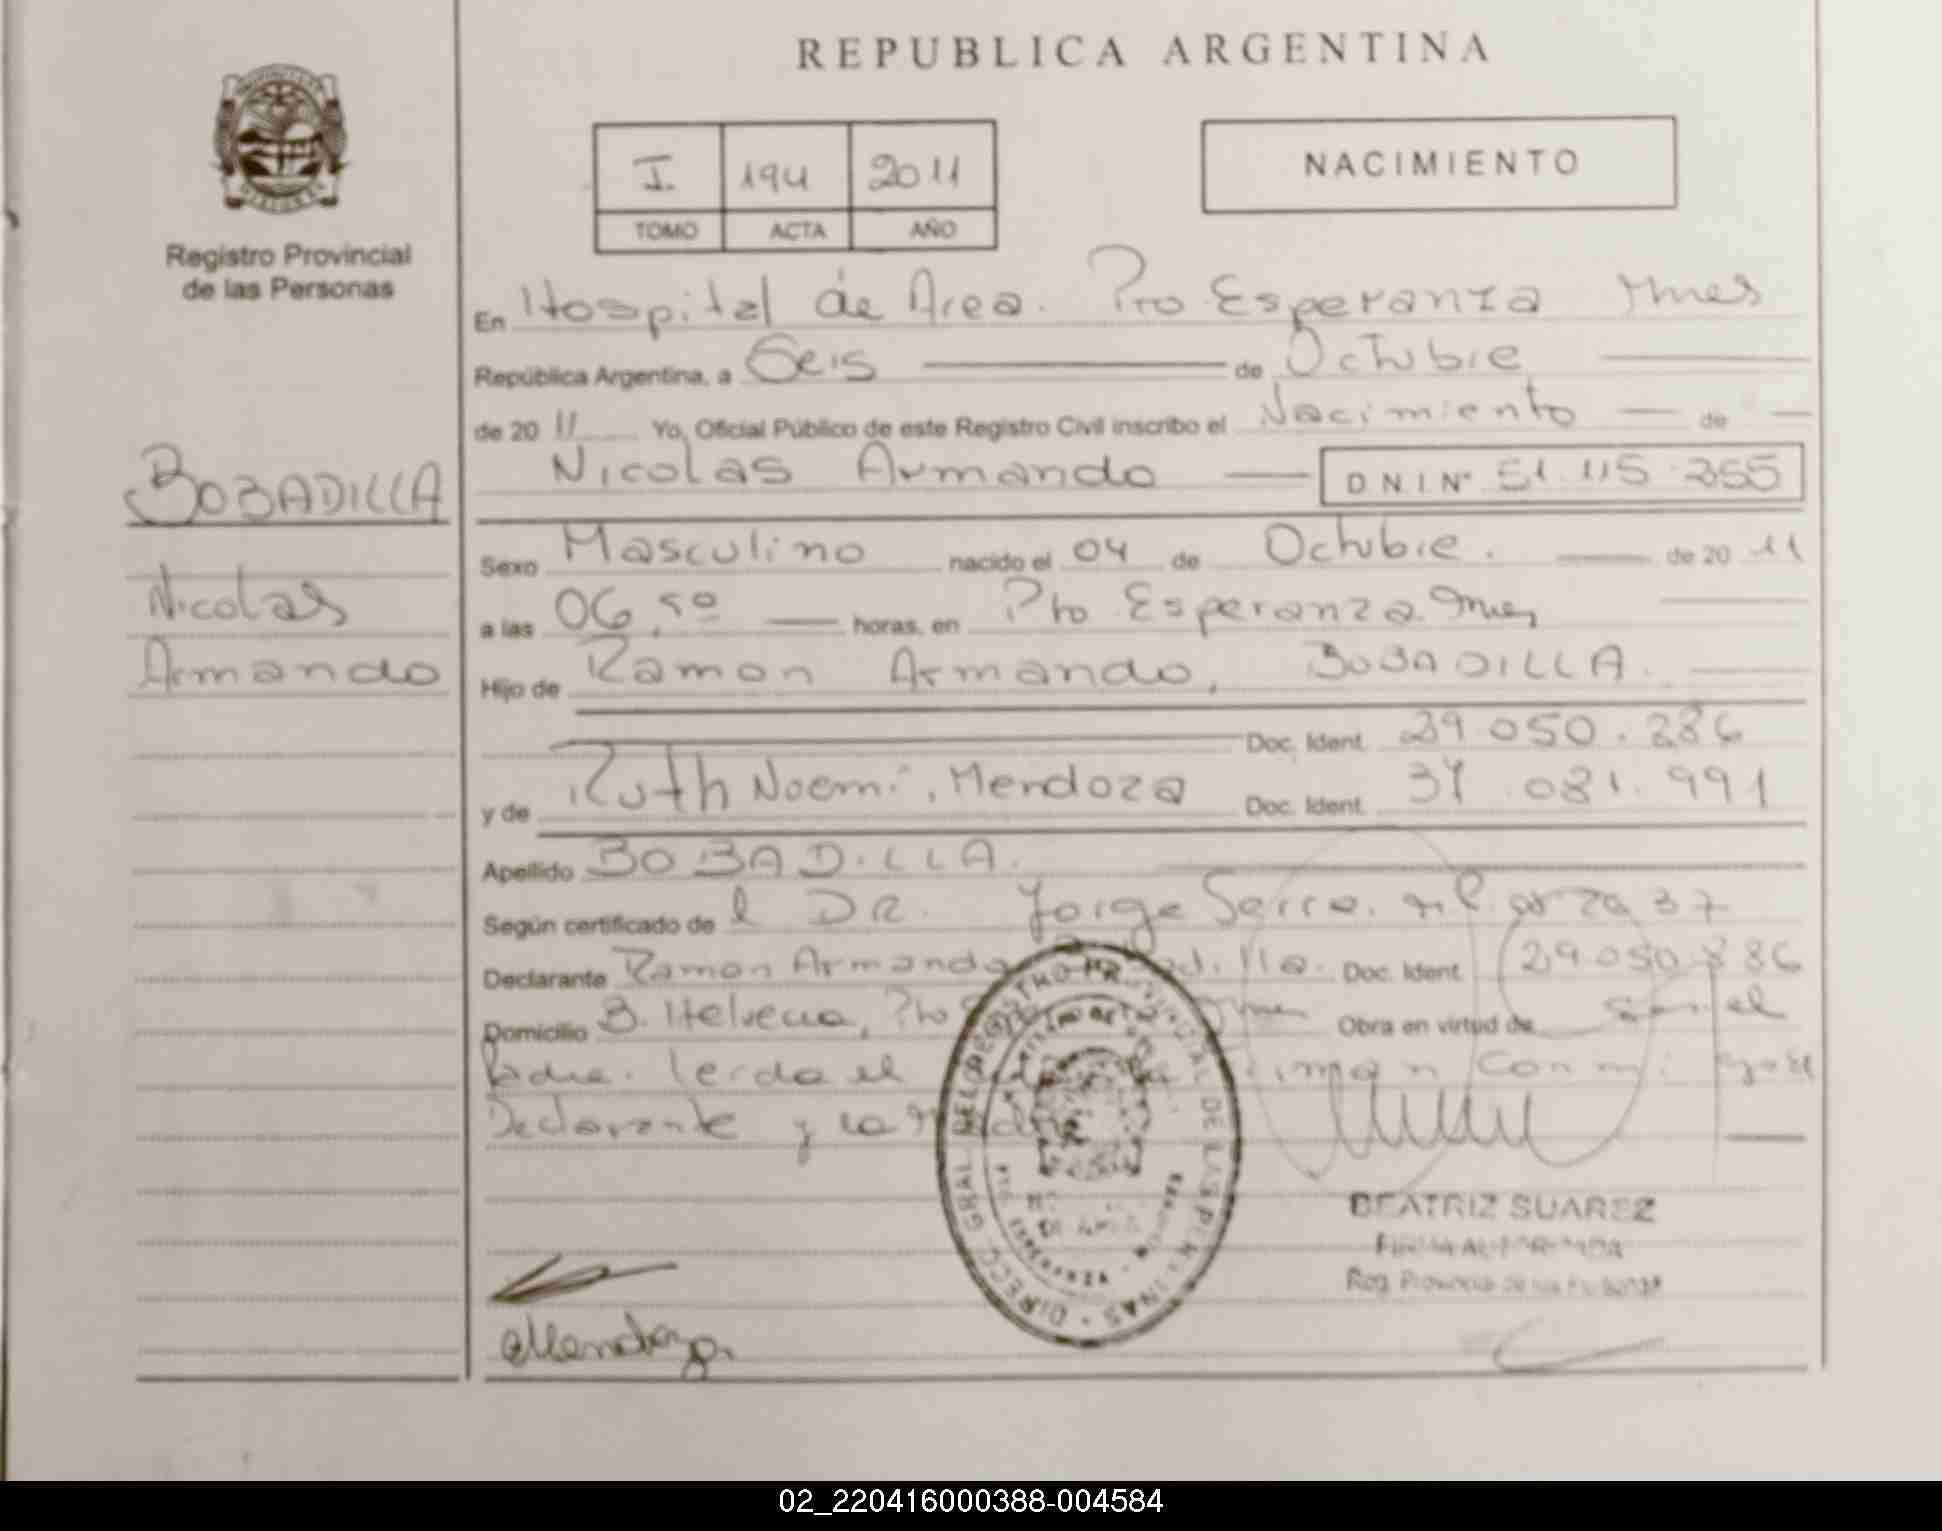 REPUBLICA ARGENTINA
Registro Provincial
de las Personas
I. 194 2011
TOMO ACTA AÑO
NACIMIENTO
BOBADILLA
Nicolas
Armando
En Hospital de Area. Pto Esperanza Mnes
República Argentina, a Seis de Octubre
de 20 11 Yo, Oficial Público de este Registro Civil inscribo el Nacimiento de
Nicolas Armando D.N.I. Nº 51.115.355
Sexo Masculino nacido el 04 de Octubre. de 20 11
a las 06,50 horas, en Pto Esperanza Mnes
Hijo de Ramon Armando, BOBADILLA.
Doc. Ident. 29.050.286
y de Ruth Noemi, Mendoza Doc. Ident. 37.081.991
Apellido BOBADILLA.
Según certificado de l DR. Jorge 37
Declarante Ramon Armando Doc. Ident. 29.050.286
Domicilio B. Helvecia, Pto Obra en virtud de ser el
Padre. Leida el con mi
Declarante y la Madre
DIRECC. GRAL. DEL REGISTRO PROVINCIAL DE LAS PERSONAS
PTO. ESPERANZA - MISIONES
BEATRIZ SUAREZ
FIRMA AUTORIZADA
Reg. Provincial de las Personas
Mendoza
02_220416000388-004584